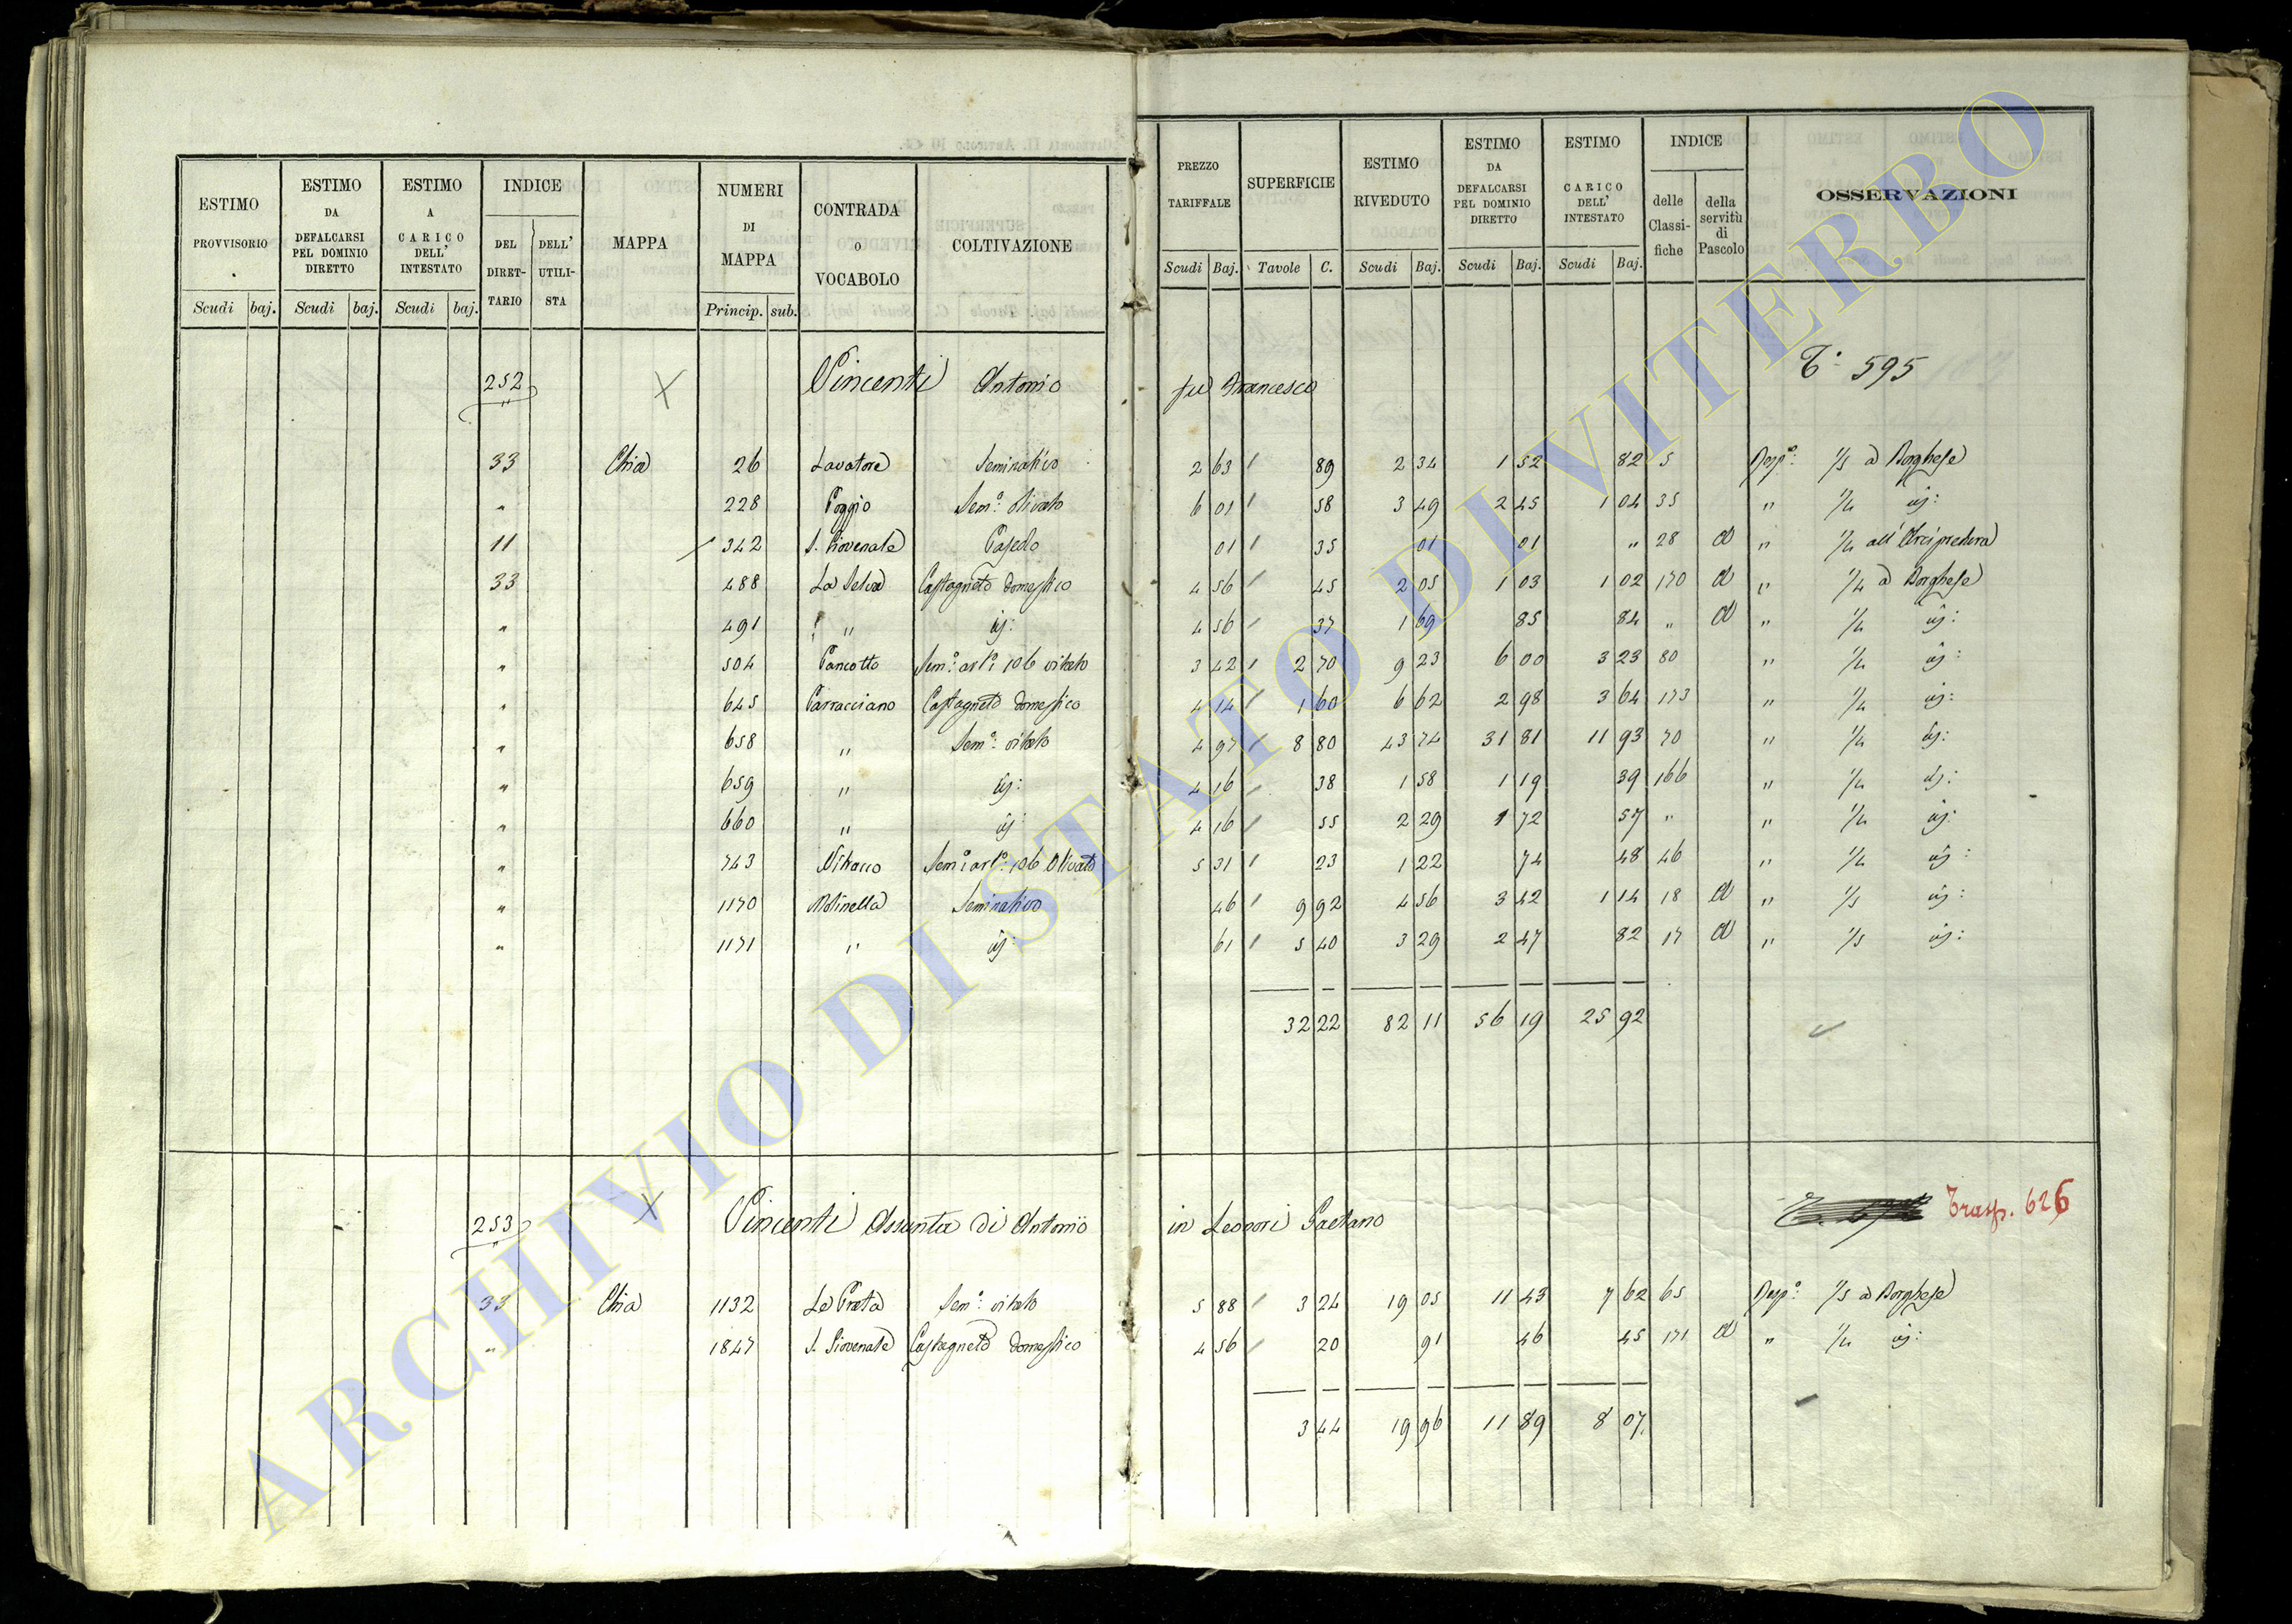 ESTIMO PROVVISORIO Scudi baj. | ESTIMO DA DEFALCARSI PEL DOMINIO DIRETTO Scudi baj. | ESTIMO A CARICO DELL' INTESTATO Scudi baj. | INDICE DEL DIRETTARIO DELL' UTILISTA | MAPPA | NUMERI DI MAPPA Princip. sub. | CONTRADA O VOCABOLO | COLTIVAZIONE | PREZZO TARIFFALE Scudi Baj. | SUPERFICIE Tavole C. | ESTIMO RIVEDUTO Scudi Baj. | ESTIMO DA DEFALCARSI PEL DOMINIO DIRETTO Scudi Baj. | ESTIMO CARICO DELL' INTESTATO Scudi Baj. | INDICE delle Classifiche della servitù di Pascolo | OSSERVAZIONI
252 X Vincenti Antonio fu Francesco T. 595
33 Chia 26 Lavatore Seminativo 2 63 89 2 34 1 52 82 5 Risp.e 1/5 a Borghese
" 228 Poggio Sem.o Olivato 6 01 58 3 49 2 45 1 04 35 " 1/4 id:
11 342 S. Giovenale Pascolo 01 35 01 01 " 28 " 1/4 all'Arcipretura
33 488 La Selva Castagneto domestico 4 56 45 2 05 1 03 1 02 170 " 1/4 a Borghese
" 491 " id: 4 56 37 1 69 85 84 " " 1/4 id:
" 504 Pancotto Sem.o art.o 106 vitato 3 42 2 70 9 23 6 00 3 23 80 " 1/4 id:
" 645 Parracciano Castagneto domestico 4 14 1 60 6 62 2 98 3 64 173 " 1/4 id:
" 658 " Sem.o vitato 4 97 8 80 43 74 31 81 11 93 70 " 1/4 id:
" 659 " id: 4 16 38 1 58 1 19 39 166 " 1/4 id:
" 660 " id: 4 16 55 2 29 1 72 57 " " 1/4 id:
" 743 Sem.o art.o 106 Olivato 5 31 23 1 22 74 48 46 " 1/4 id:
" 1170 Molinella Seminativo 46 9 92 4 56 3 42 1 14 18 " 1/5 id:
" 1171 " id: 61 5 40 3 29 2 47 82 17 " 1/5 id:
32 22 82 11 56 19 25 92
253 X Vincenti Assunta di Antonio in Leonori Gaetano Trasp. 626
33 Chia 1132 Le Prata Sem.o vitato 5 88 3 24 19 05 11 43 7 62 65 Risp.e 1/5 a Borghese
" 1847 S. Giovenale Castagneto domestico 4 56 20 91 46 45 171 " 1/4 id:
3 44 19 96 11 89 8 07
ARCHIVIO DI STATO DI VITERBO